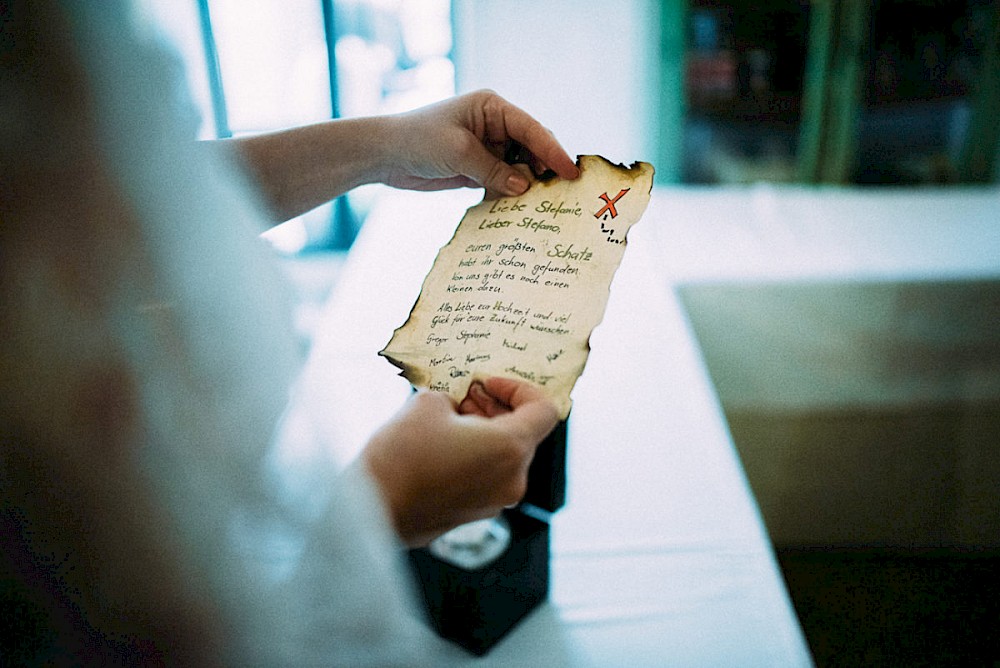 Liebe Stefanie,
Lieber Stefano,
euren größten Schatz
habt ihr schon gefunden.
Von uns gibt es noch einen
kleinen dazu.
Alles Liebe zur Hochzeit und viel
Glück für eure Zukunft wünschen
Gregor Stephanie Michael
Martin